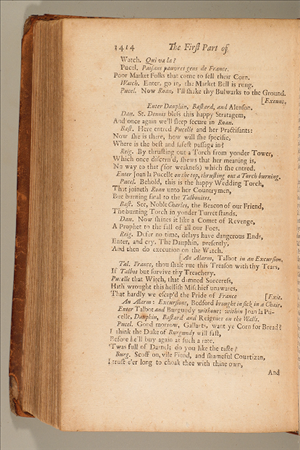 1414 The First Part of
Watch. Qui va la?
Pucel. Paisans pauvres gens de France.
Poor Market Folks that come to sell their Corn.
Watch. Enter, go in, the Market Bell is rung.
Pucel. Now Roan, I'll shake thy Bulwarks to the Ground.
[Exeunt.
Enter Dauphin, Bastard, and Alenson.
Dau. St. Dennis bless this happy Stratagem,
And once again we'll sleep secure in Roan.
Bast. Here entred Pucelle and her Practisants:
Now she is there, how will she specifie,
Where is the best and safest passage in?
Reig. By thrusting out a Torch from yonder Tower,
Which once discern'd, shews that her meaning is,
No way to that (for weakness) which she entred.
Enter Joan la Pucelle on the top, thrusting out a Torch burning.
Pucel. Behold, this is the happy Wedding Torch,
That joineth Roan unto her Countrymen,
But burning fatal to the Talbonites.
Bast. See, Noble Charles, the Beacon of our Friend,
The burning Torch in yonder Turret stands.
Dau. Now shines it like a Comet of Revenge,
A Prophet to the fall of all our Foes.
Reig. Defer no time, delays have dangerous Ends,
Enter, and cry, The Dauphin, presently,
And then do execution on the Watch.
[An Allarm, Talbot in an Excursion.
Tal. France, thou shalt rue this Treason with thy Tears,
If Talbot but survive thy Treachery.
Pucelle that Witch, that damned Sorceress,
Hath wrought this hellish Mischief unawares,
That hardly we escap'd the Pride of France [Exit.
An Allarm: Excursions, Bedford brought in sick in a Chair.
Enter Talbot and Burgundy without: within Joan la Pu-
celle, Dauphin, Bastard and Reignier on the Walls.
Pucel. Good morrow, Gallants, want ye Corn for Bread?
I think the Duke of Burgundy will fast,
Before he'll buy again at such a rate.
'Twas full of Darnel; do you like the taste?
Burg. Scoff on, vile Fiend, and shameful Courtizan,
I trust e'er long to choak thee with thine own,
And